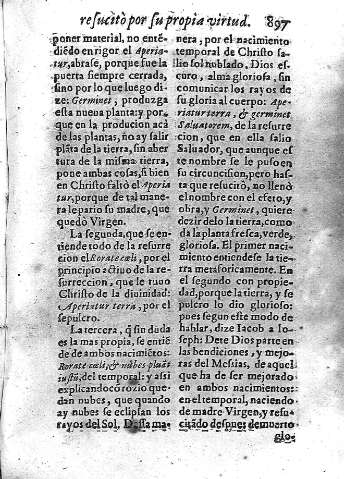 resucitò por su propia virtud. 897
poner material, no ente-
diẽdo en rigor el Aperia-
tur, abrase, porque fue la
puerta siempre cerrada,
sino por lo que luego di-
ze: Germinet, produzga
esta nueua planta: y por-
que en la producion acá
de las plantas, no ay salir
plãta de la tierra, sin aber
tura de la misma tierra,
pone ambas cosas, si bien
en Christo faltò el Aperia
tur, porque de tal mane-
ra le pario su madre, que
quedò Virgen.
La segunda, que se en-
tiende todo de la resurre
cion el Rorate cæli, por el
principio actiuo de la re-
surreccion, que se tuuo
Christo de la diuinidad:
Aperiatur terra, por el
sepulcro.
La tercera, q̃ sin duda
es la mas propia, se entiẽ
de de ambos nacimiẽtos:
Rorate cæli, & nubes pluãt
iustũ, del temporal: y assi
explicando co rozio que
dan nubes, que quando
ay nubes se eclipsan los
rayos del Sol. Dessa ma-
nera, por el nacimiento
temporal de Christo sa-
lio sol nublado, Dios es-
curo, alma gloriosa, sin
comunicar los rayos de
su gloria al cuerpo: Ape-
riatur terra, & germinet
Saluatorem, de la resurre
cion, que en ella salio
Saluador, que aunque es
te nombre se le puso en
su circuncision, pero has-
ta que resucitò, no llenò
el nombre con el efeto, y
obra, y Germinet, quiere
dezir delo la tierra, como
da la planta fresca, verde,
gloriosa. El primer naci-
miento entiendese la tie
rra metaforicamente. En
el segundo con propie-
dad, porque la tierra, y se
pulcro lo dio glorioso:
pues segun este modo de
hablar, dize Iacob a Io-
seph: Dete Dios parte en
las bendiciones, y mejo-
ras del Messias, de aquel
que ha de ser mejorado
en ambos nacimientos:
en el temporal, naciendo
de madre Virgen, y resu-
citado despues de muerto
glo-